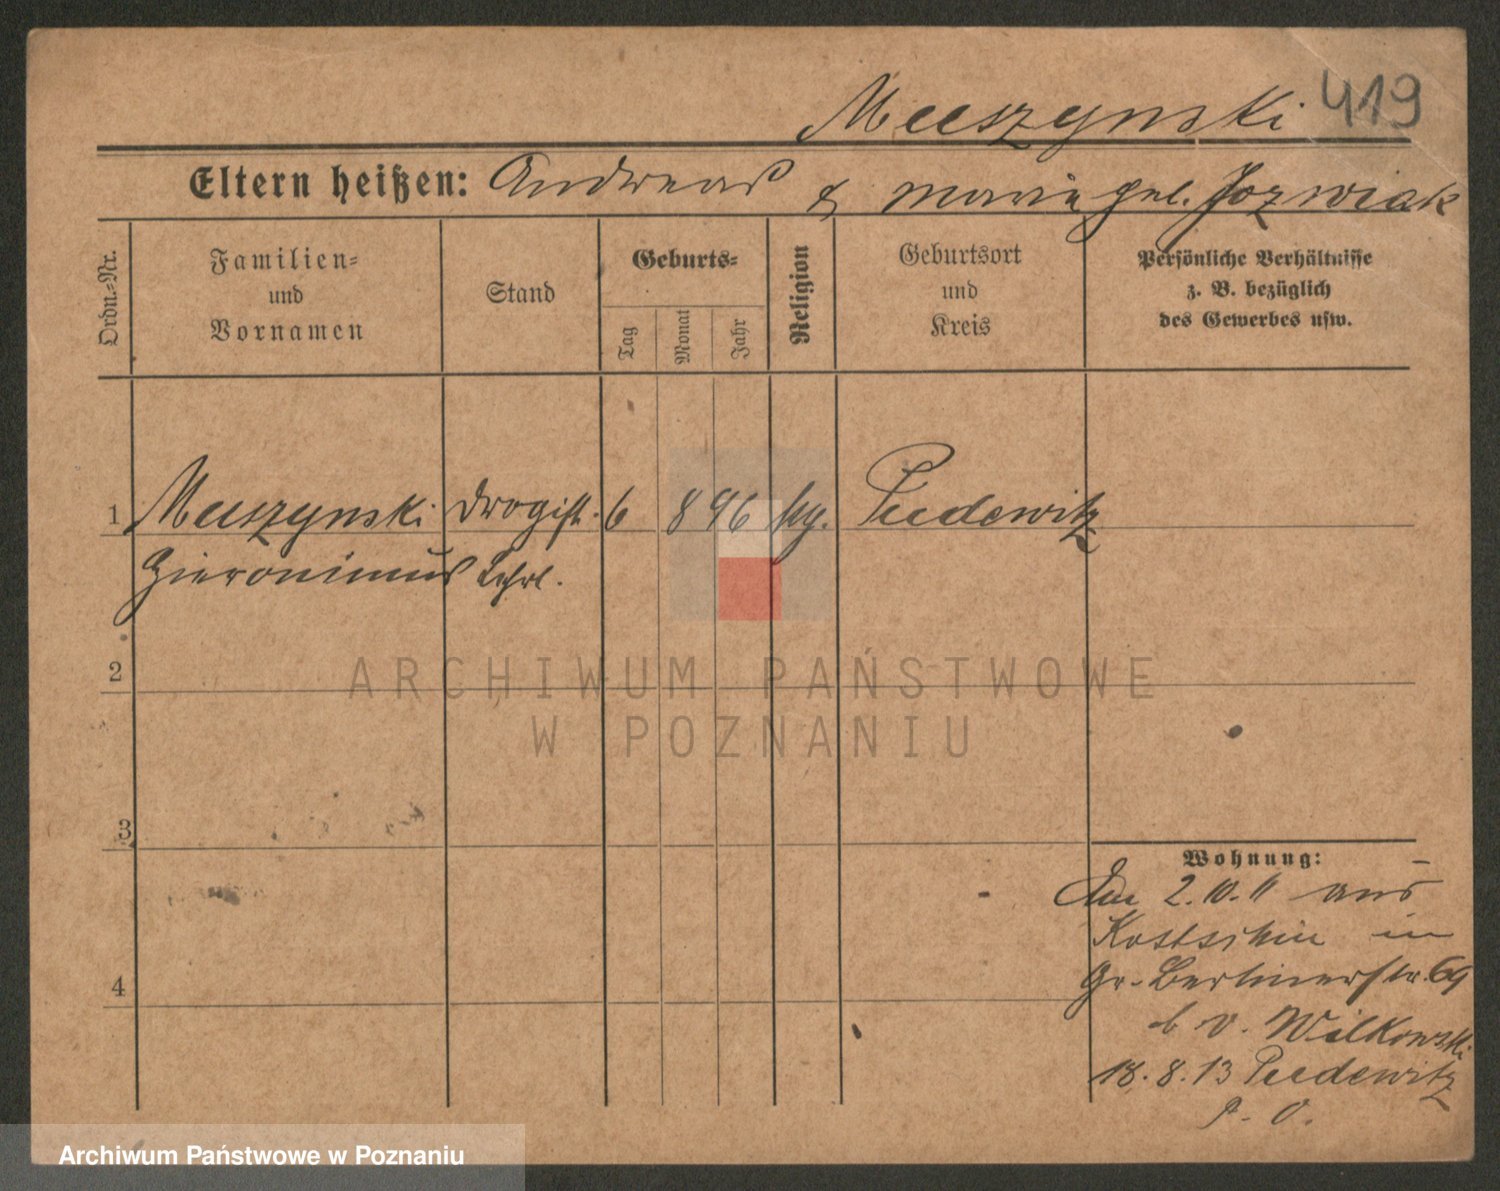 Muszynski 419
Eltern heißen: Andreas & Marie geb. Jozwiak
Ordn.-Nr.
Familien-
und
Vornamen
Stand
Geburts-
Tag
Monat
Jahr
Religion
Geburtsort
und
Kreis
Persönliche Verhältnisse
z. B. bezüglich
des Gewerbes usw.
1 Muszynski Drogist. 6 8 96 kg. Pudewitz
Hieronimus Lehrl.
2
ARCHIWUM PAŃSTWOWE
W POZNANIU
3
Wohnung:
Am 2.10.11 aus
Kostschin in
4
Gr. Berlinerstr. 69
b v. Wilkowski
18.8.13 Pudewitz
P. O.
Archiwum Państwowe w Poznaniu